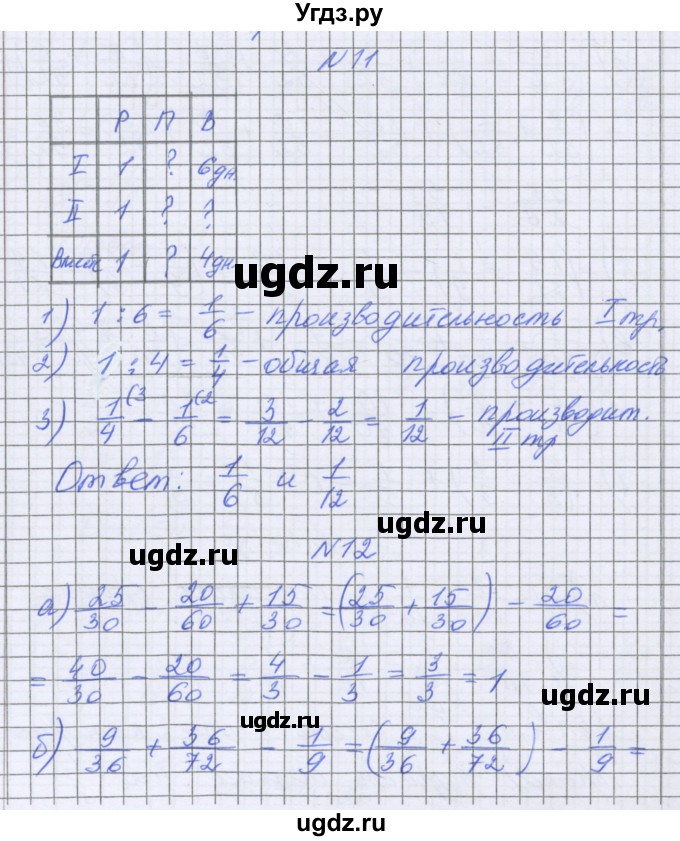 Угдз.ру
N11
Р П В
I 1 ? 6дн.
II 1 ? ?
Вмест 1 ? 4дн.
ugdz.ru
1) 1 : 6 = 1/6 - производительность I тр.
2) 1 : 4 = 1/4 - общая производительность
3) 1/4 (3 - 1/6 (2 = 3/12 - 2/12 = 1/12 - производит. II тр
Ответ: 1/6 и 1/12
ugdz.ru
ugdz.ru
N12
а) 25/30 - 20/60 + 15/30 = (25/30 + 15/30) - 20/60 =
= 40/30 - 20/60 = 4/3 - 1/3 = 3/3 = 1
ugdz.ru
ugdz.ru
б) 9/36 + 36/72 - 1/9 = (9/36 + 36/72) - 1/9 =
ugdz.ru